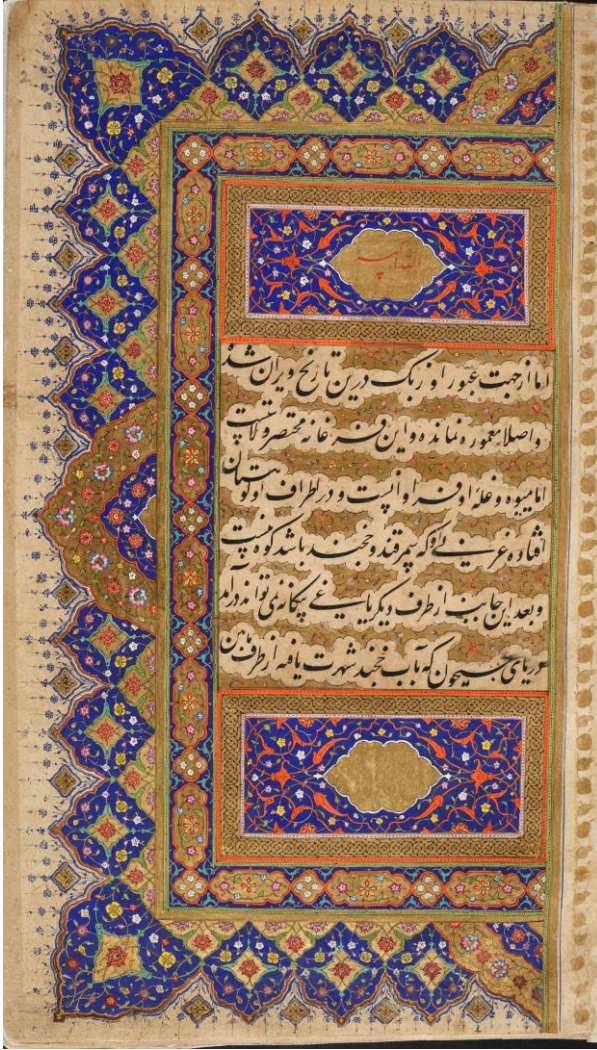 الله اکبر
اما از جهت عبور اوزبک درین تاریخ ویران شد
و اصلا معموره نمانده و این فرغانه مختصر ولایتیست
اما میوه و غله او فراوانست و در اطراف او کوهستان
افتاده غربی او که سمرقند و خجند باشد کوه نیست
و بعد این جانب از طرف دیگر یاغی تواند درآمد
دریای سیحون که بآب خجند شهرت یافته از طرف مابین